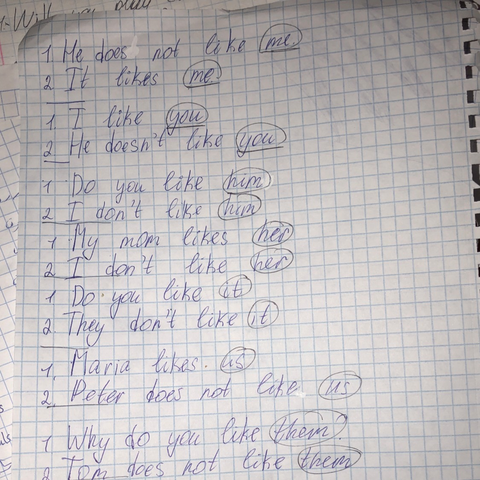 1. He does not like me
2. It likes me
1. I like you
2. He doesn't like you
1. Do you like him
2. I don't like him
1. My mom likes her
2. I don't like her
1. Do you like it
2. They don't like it
1. Maria likes. us
2. Peter does not like us
1 Why do you like them?
2 Tom does not like them